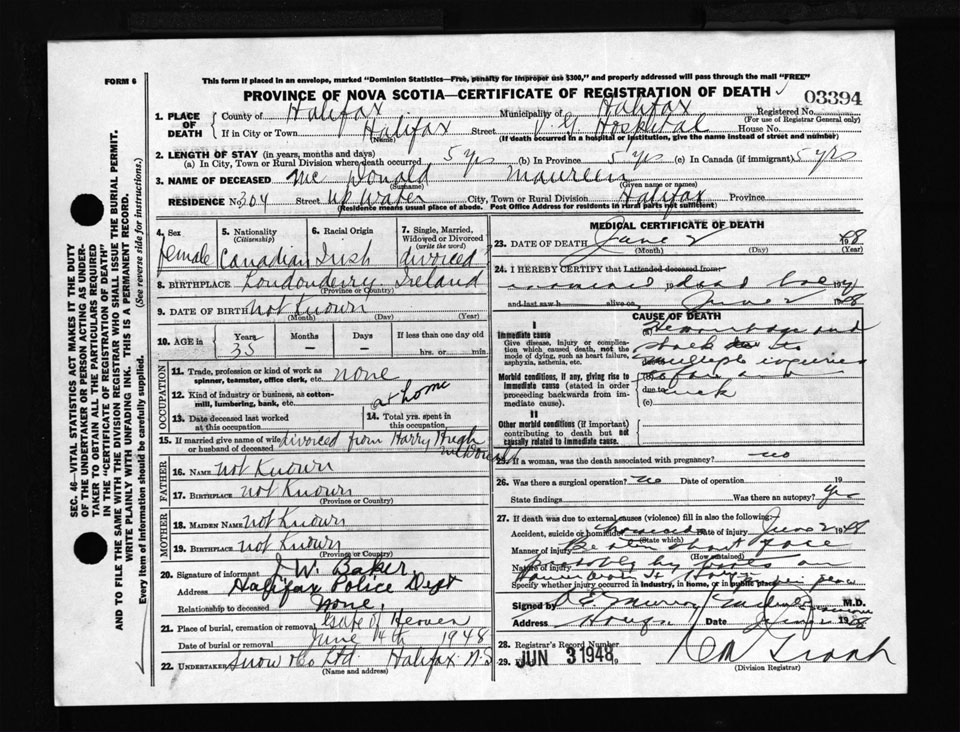 FORM 6
This form if placed in an envelope, marked "Dominion Statistics—Free, penalty for improper use $300," and properly addressed will pass through the mail "FREE"
PROVINCE OF NOVA SCOTIA—CERTIFICATE OF REGISTRATION OF DEATH
03394
1. PLACE OF DEATH
County of Halifax Municipality of Halifax Registered No.
(For use of Registrar General only)
If in City or Town Halifax Street V.G. Hospital House No.
(Name) (If death occurred in a hospital or institution, give the name instead of street and number)
2. LENGTH OF STAY (in years, months and days)
(a) In City, Town or Rural Division where death occurred 5 yrs (b) In Province 5 yrs (c) In Canada (if immigrant) 5 yrs
3. NAME OF DECEASED McDonald Maureen
(Surname) (Given name or names)
RESIDENCE No. 304 Street Up Water City, Town or Rural Division Halifax Province
(Residence means usual place of abode. Post Office Address for residents in rural parts not sufficient)
4. Sex
female
5. Nationality (Citizenship)
Canadian
6. Racial Origin
Irish
7. Single, Married, Widowed or Divorced (write the word)
divorced
8. BIRTHPLACE Londonderry Ireland
(Province or Country)
9. DATE OF BIRTH not Known
(Month) (Day) (Year)
10. AGE in Years Months Days If less than one day old
35 — — hrs. or min.
OCCUPATION
11. Trade, profession or kind of work as spinner, teamster, office clerk, etc. none
12. Kind of industry or business, as cotton-mill, lumbering, bank, etc. at home
13. Date deceased last worked at this occupation
14. Total yrs. spent in this occupation
15. If married give name of wife or husband of deceased divorced from Harry Hugh McDonald
FATHER
16. NAME not Known
17. BIRTHPLACE not Known
(Province or Country)
MOTHER
18. MAIDEN NAME not Known
19. BIRTHPLACE not Known
(Province or Country)
20. Signature of informant J. W. Baker
Address Halifax Police Dept
Relationship to deceased None,
21. Place of burial, cremation or removal Gate of Heaven
Date of burial or removal June 4th 1948
22. Undertaker Snow Ltd Halifax N.S
(Name and address)
MEDICAL CERTIFICATE OF DEATH
23. DATE OF DEATH June 2 1948
(Month) (Day) (Year)
24. I HEREBY CERTIFY that I attended deceased from
examined 19 dead 19
and last saw h alive on June 2 1948
CAUSE OF DEATH
I
Immediate cause
Give disease, injury or complication which caused death, not the mode of dying, such as heart failure, asphyxia, asthenia, etc.
Hemorrhage and
shock due to
multiple injuries
Morbid conditions, if any, giving rise to immediate cause (stated in order proceeding backwards from immediate cause).
due to
neck
(c)
II
Other morbid conditions (if important) contributing to death but not causally related to immediate cause.
25. If a woman, was the death associated with pregnancy? no
26. Was there a surgical operation? no Date of operation 19
State findings Was there an autopsy? yes
27. If death was due to external causes (violence) fill in also the following:
Accident, suicide or homicide? homicide Date of injury June 2 1948
(State which)
Manner of injury Beaten about face
(How sustained)
Nature of injury
Specify whether injury occurred in industry, in home, or in public place
Signed by M.D.
Address Date 1948
28. Registrar's Record Number
29. JUN 3 1948
(Division Registrar)
SEC. 46—VITAL STATISTICS ACT MAKES IT THE DUTY
OF THE UNDERTAKER OR PERSON ACTING AS UNDER-
TAKER TO OBTAIN ALL THE PARTICULARS REQUIRED
IN THE "CERTIFICATE OF REGISTRATION OF DEATH"
AND TO FILE THE SAME WITH THE DIVISION REGISTRAR WHO SHALL ISSUE THE BURIAL PERMIT.
WRITE PLAINLY WITH UNFADING INK. THIS IS A PERMANENT RECORD.
Every item of information should be carefully supplied. (See reverse side for instructions.)